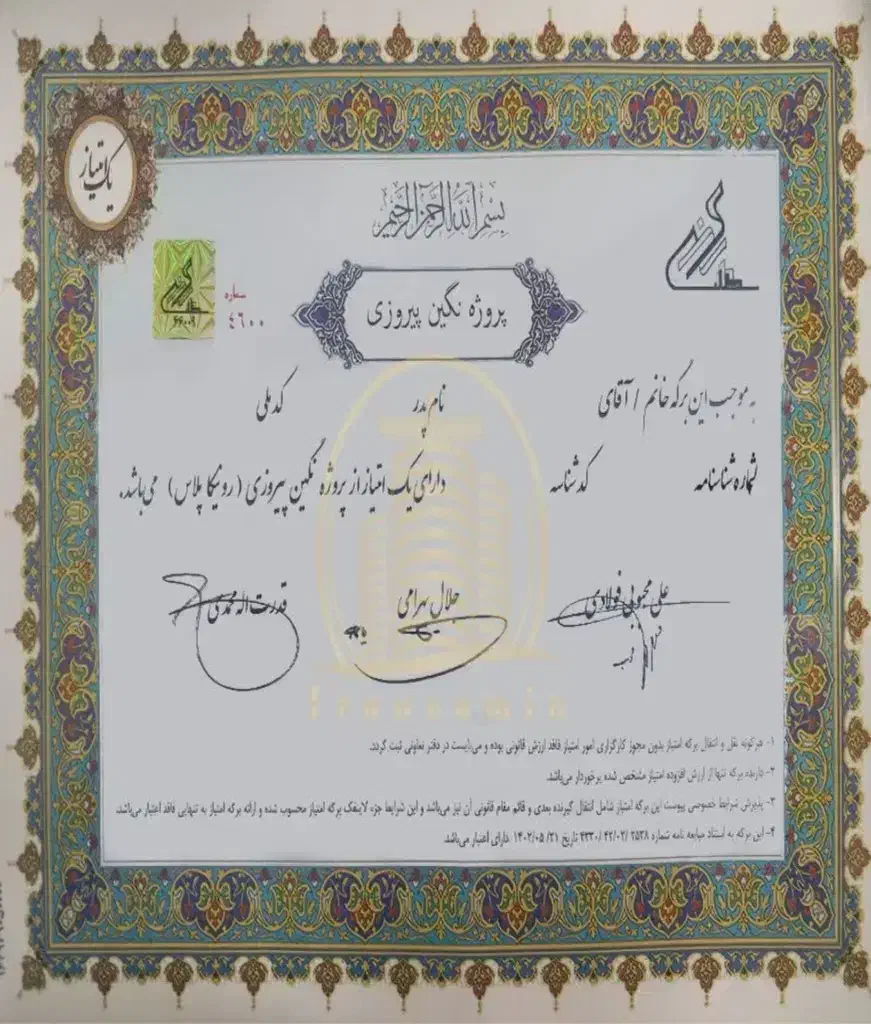 یک امتیاز
بسم الله الرحمن الرحیم
شماره
٤٦٠٠
پروژه نگین پیروزی
به موجب این برگه خانم / آقای نام پدر کد ملی
شماره شناسنامه کد شناسه دارای یک امتیاز از پروژه نگین پیروزی (رونیکا پلاس) می باشد.
علی محبوبی فولادی جلال بهرامی قدرت اله محمدی
۱- هرگونه نقل و انتقال برگه امتیاز بدون مجوز کارگزاری امور امتیاز فاقد ارزش قانونی بوده و می‌بایست در دفتر تعاونی ثبت گردد.
۲- دارنده برگه تنها از ارزش افزوده امتیاز مشخص شده برخوردار می‌باشد.
۳- پذیرش شرایط خصوصی پیوست این برگه امتیاز شامل انتقال گیرنده بعدی و قائم مقام قانونی آن نیز می‌باشد و این شرایط جزء لاینفک برگه امتیاز محسوب شده و ارائه برگه امتیاز به تنهایی فاقد اعتبار می‌باشد.
۴- این برگه به استناد مبایعه نامه شماره ۲۵۳۸ /۴۲/۰۲/ ۴۳۳۰ تاریخ ۳۱/ ۱۴۰۲/۰۵ دارای اعتبار می‌باشد.